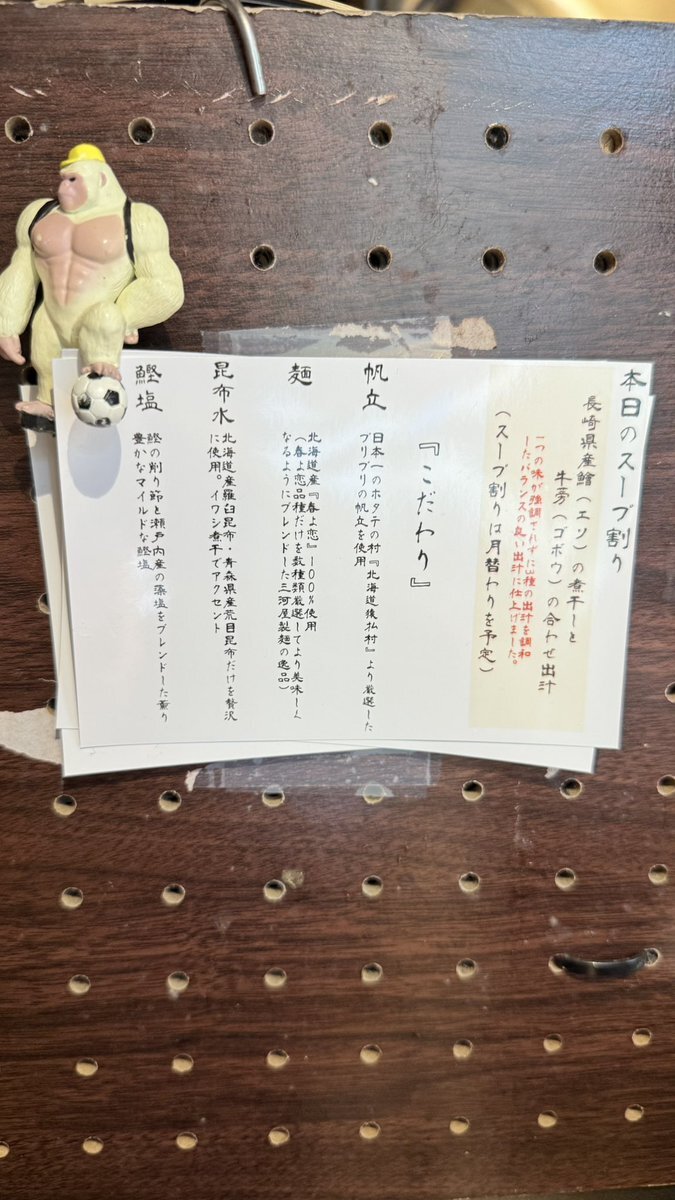 本日のスープ割り
長崎県産鱠（エソ）の煮干しと
牛蒡（ゴボウ）の合わせ出汁
一つの味が強調されずに3種の出汁を調和
したバランスの良い出汁に仕上げました。
（スープ割りは月替わりを予定）
『こだわり』
帆立
日本一のホタテの村『北海道猿払村』より厳選した
プリプリの帆立を使用
麺
北海道産『春よ恋』100％使用
（春よ恋品種だけを数種類厳選してより美味しく
なるようにブレンドした三河屋製麺の逸品）
昆布水
北海道産羅臼昆布・青森県産荒目昆布だけを贅沢
に使用。イワシ煮干でアクセント
鰹塩
鰹の削り節と瀬戸内産の藻塩をブレンドした薫り
豊かなマイルドな鰹塩